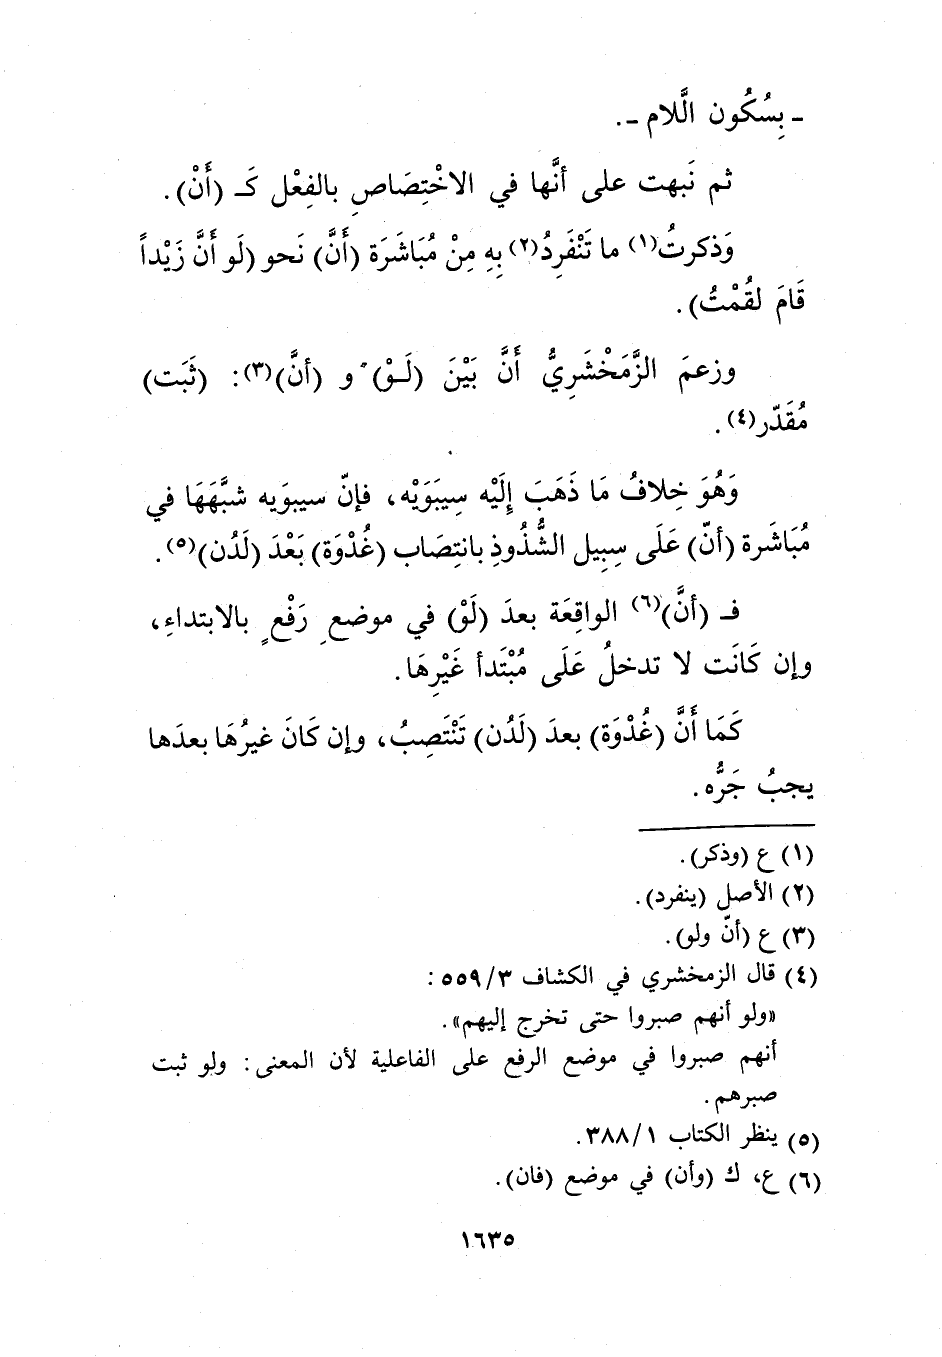 ـ بِسُكُون الَّلام ـ.
ثم نَبهت على أنَّها في الاخْتِصَاصِ بالفِعْل كَـ (أَنْ).
وَذكرتُ(١) ما تَنْفَرِدُ(٢) بِهِ مِنْ مُبَاشَرَة (أَنَّ) نَحو (لَو أَنَّ زَيْداً
قَامَ لقُمْتُ).
وزعمَ الزَّمَخْشَرِيُّ أَنَّ بَيْنَ (لَـوْ) و (أنَّ)(٣): (ثَبَت)
مُقَدّر(٤).
وَهُوَ خِلافُ مَا ذَهَبَ إِلَيْه سِيبَوَيْه، فإنّ سيبوَيه شبَّهَهَا في
مُبَاشَرة (أنّ) عَلَى سبِيل الشُّذُوذِ بانتِصَاب (غُدْوَة) بَعْدَ (لَدُن)(٥).
فـ (أنَّ)(٦) الواقِعَة بعدَ (لَوْ) في موضعِ رَفْعٍ بالابتداءِ،
وإن كَانَت لا تدخلُ عَلَى مُبْتَدأ غَيْرِهَا.
كَمَا أَنَّ (غُدْوَة) بعدَ (لَدُن) تَنْتَصِبُ، وإن كَانَ غيرُهَا بعدَها
يجبُ جَرُّه.
(١) ع (وذكر).
(٢) الأصل (ينفرد).
(٣) ع (أنّ ولو).
(٤) قال الزمخشري في الكشاف ٥٥٩/٣:
«ولو أنهم صبروا حتى تخرج إليهم».
أنهم صبروا في موضع الرفع على الفاعلية لأن المعنى: ولو ثبت
صبرهم.
(٥) ينظر الكتاب ٣٨٨/١.
(٦) ع، ك (وأن) في موضع (فان).
١٦٣٥